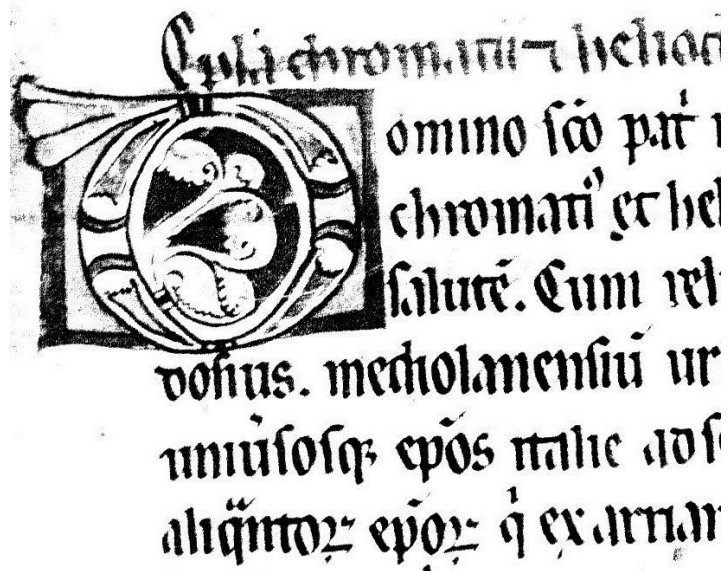 Epła chromatii ⁊ heliod
Domino sc̄o pat̄
chromati᾿ et hel
salutē. Cum rel
dosius. mediolanensiū ur
uniūsosq; ep̄os italie ad s
aliq̈ntoꝝ ep̄oꝝ q̇ ex arrian